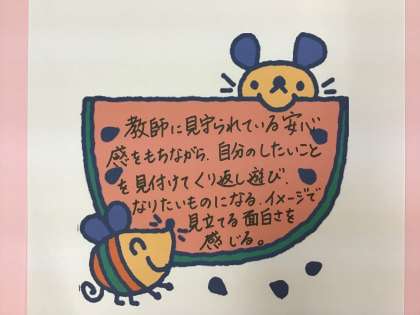 教師に見守られている安心
感をもちながら、自分のしたいこと
を見付けてくり返し遊び、
なりたいものになる、イメージで
見立てる面白さを
感じる。